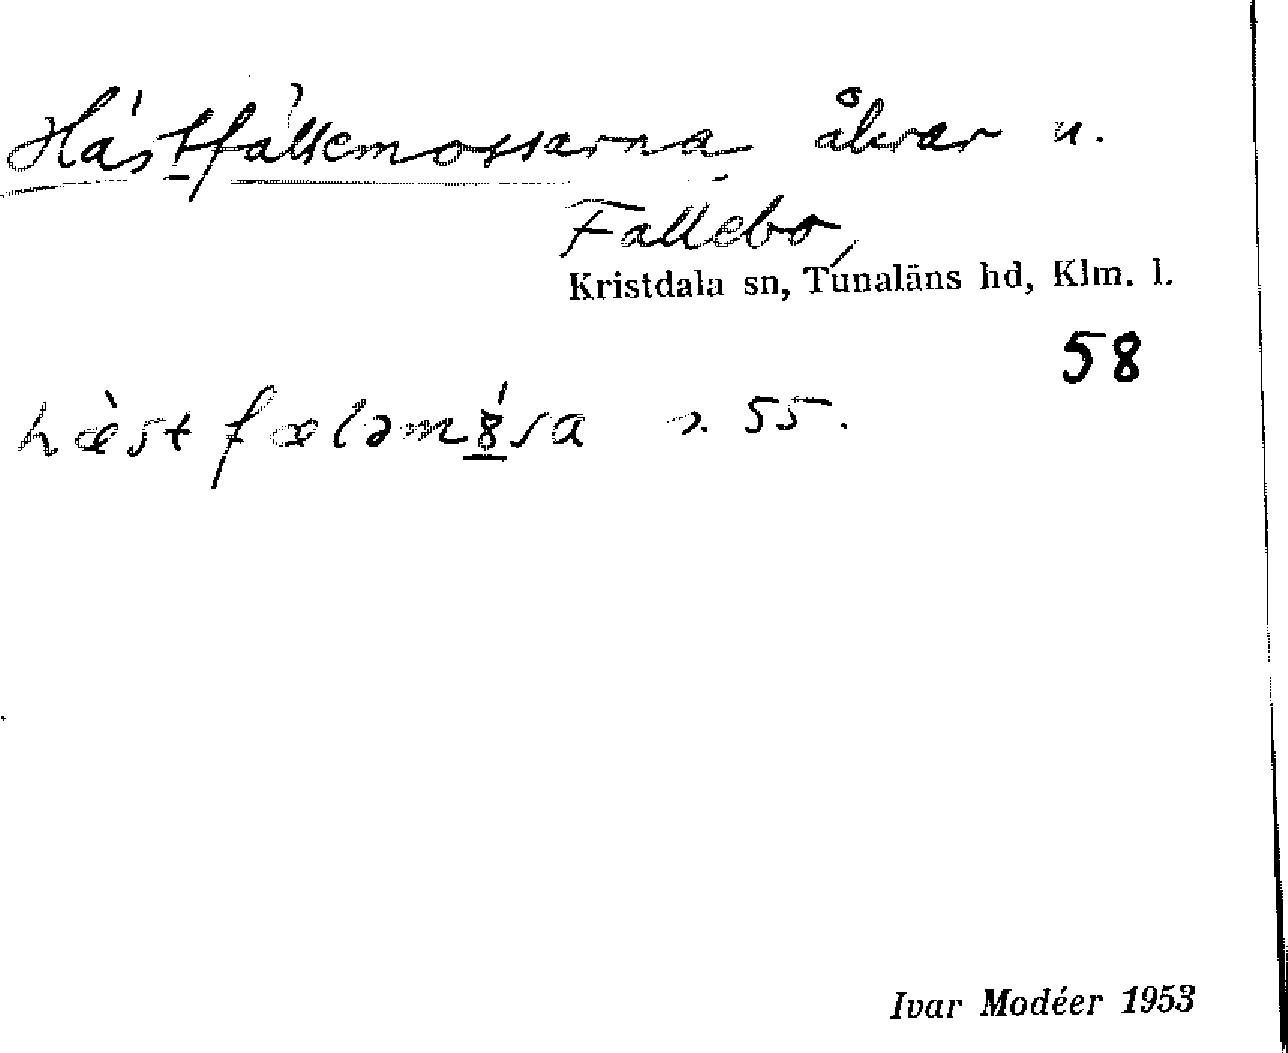 Hästfällemossarna åkrar u.
Fallebo,
Kristdala sn, Tunaläns hd, Klm. l.
58
hæ̀stfæləm8́sa s. 55.
Ivar Modéer 1953